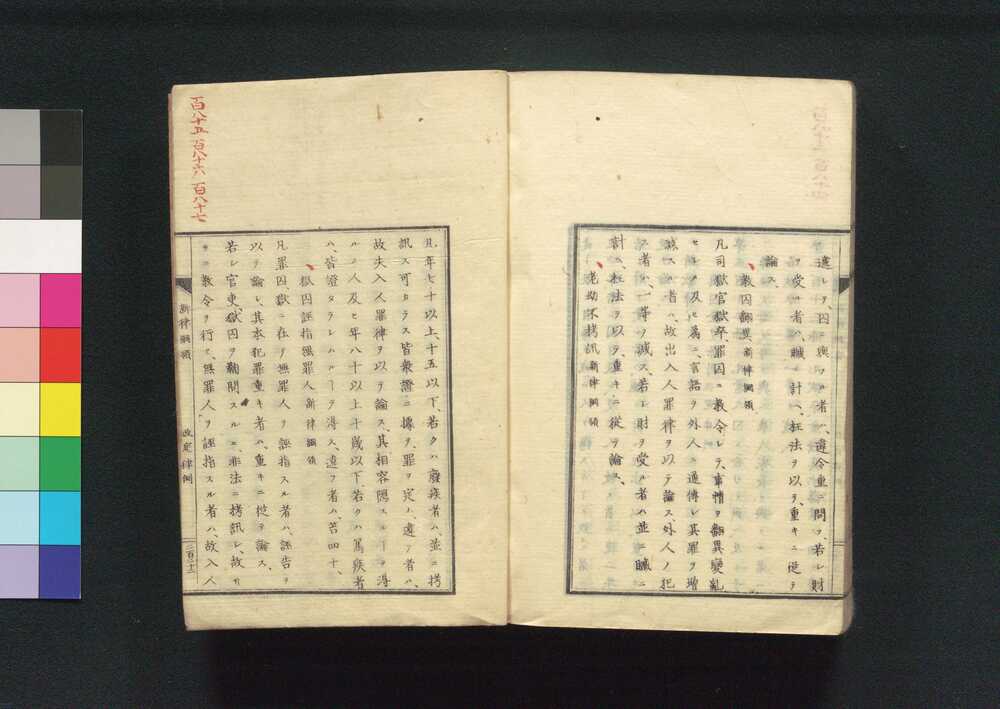 遣レヲ、囚ニ與フル者ハ、違令重ニ問フ、若シ財
ヲ受ル者ハ、贓ヲ計ヘ、枉法ヲ以テ、重キニ從テ
論ス、
教囚飜異 新律綱領
凡司獄官獄卒、罪囚ニ教令シテ、事情ヲ飜異變亂
セシメ、及ヒ為ニ、言語ヲ外人ニ通傳シ其罪ヲ増
減スル者ハ、故出入人罪律ヲ以テ論ス、外人ノ犯
ス者ハ、一等ヲ減ス、若シ財ヲ受ル者ハ並ニ贓ニ
計ヘ、枉法ヲ以テ、重キニ從テ論ス、
老幼不拷訊 新律綱領
百八十五 百八十六 百八十七
凡年七十以上、十五以下、若クハ廢疾者ハ、並ニ拷
訊ス可カラス皆衆證ニ據テ、罪ヲ定ム、違フ者ハ、
故失入人罪律ヲ以テ論ス、其相容隠スルヿヲ得
ル人及ヒ年八十以上十歳以下、若クハ篤疾者
ハ、皆證タラシムルヿヲ得ス、違フ者ハ、笞四十、
獄囚誣指無罪人 新律綱領
凡罪囚、獄ニ在テ無罪人ヲ誣指スル者ハ、誣告ヲ
以テ論シ、其本犯罪重キ者ハ、重キニ從テ論ス、
若シ官吏、獄囚ヲ鞫問スルニ、非法ニ拷訊シ、故サ
ラニ教令ヲ行ヒ、無罪人ヲ誣指スル者ハ、故入人
新律綱領 改定律例